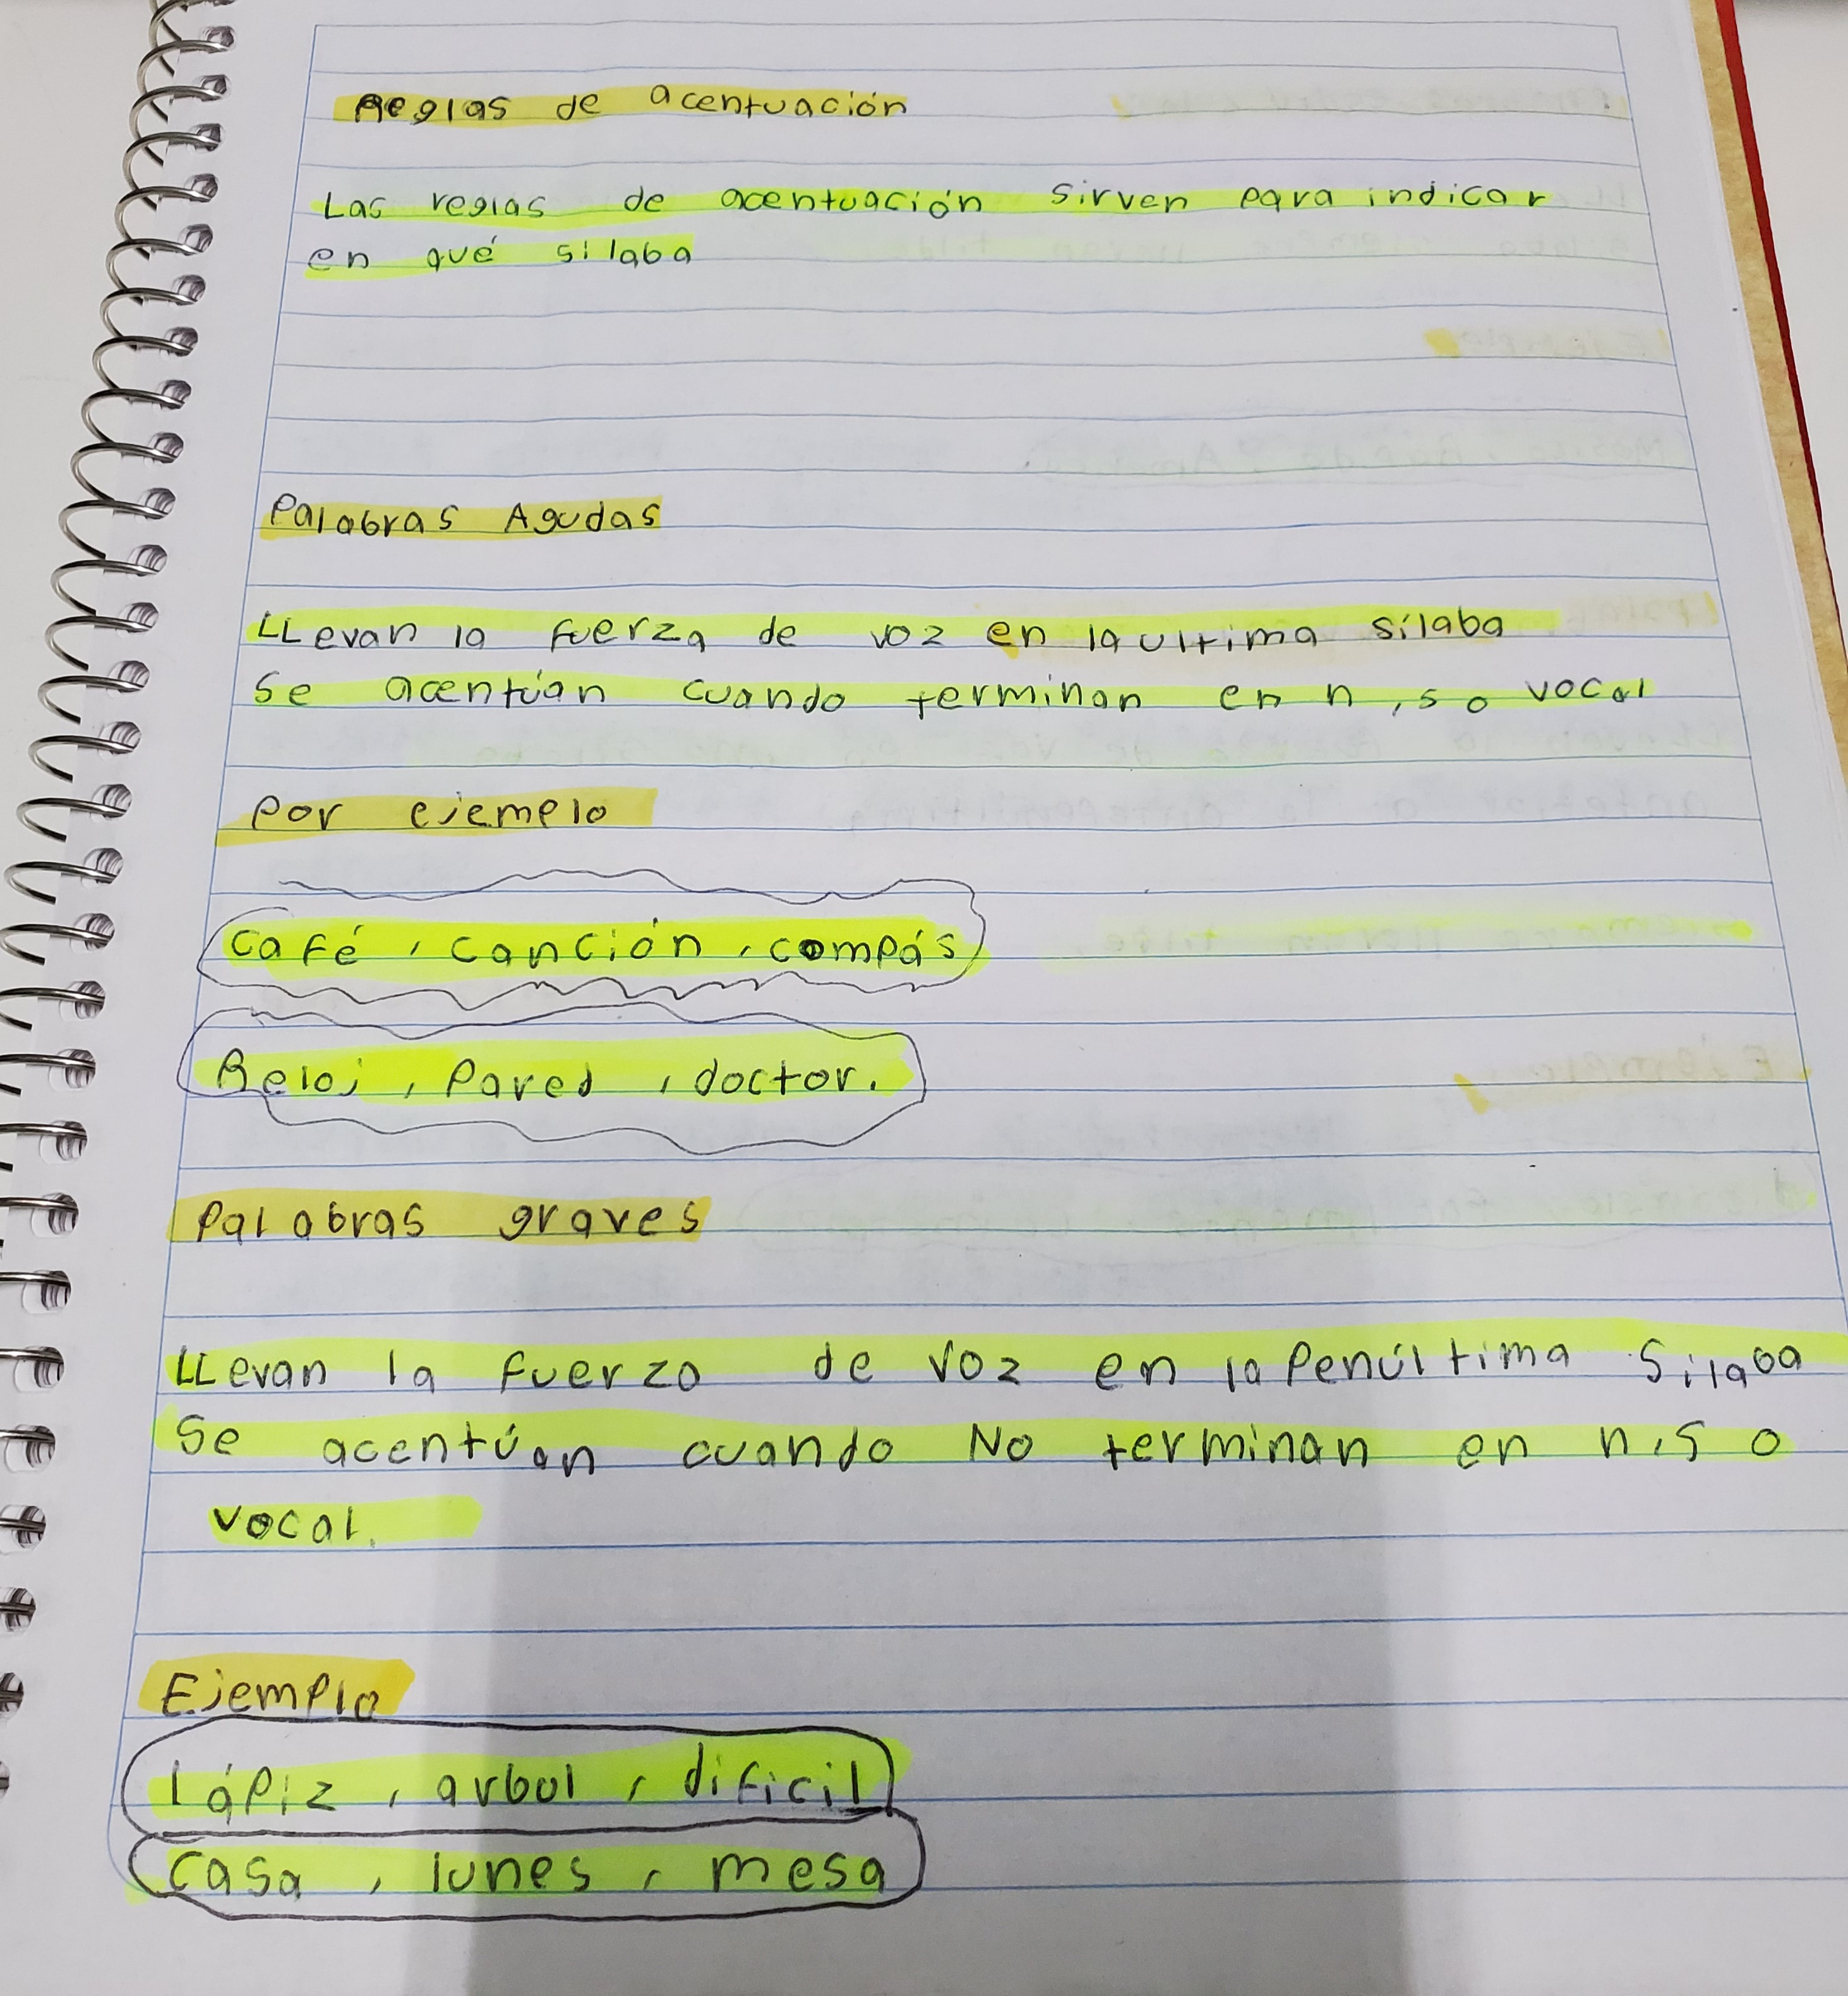 Reglas de acentuación
Las reglas de acentuación sirven para indicar
en qué silaba
Palabras Agudas
LLevan la fuerza de voz en la ultima sílaba
Se acentúan cuando terminan en n, s o vocal
por ejemplo
Café, canción, compás
Reloj, Pared, doctor.
Palabras graves
LLevan la fuerza de voz en la Penúltima Silaba
Se acentúan cuando No terminan en n, s o
vocal.
Ejemplo
Lápiz, arbol, dificil
Casa, lunes, mesa